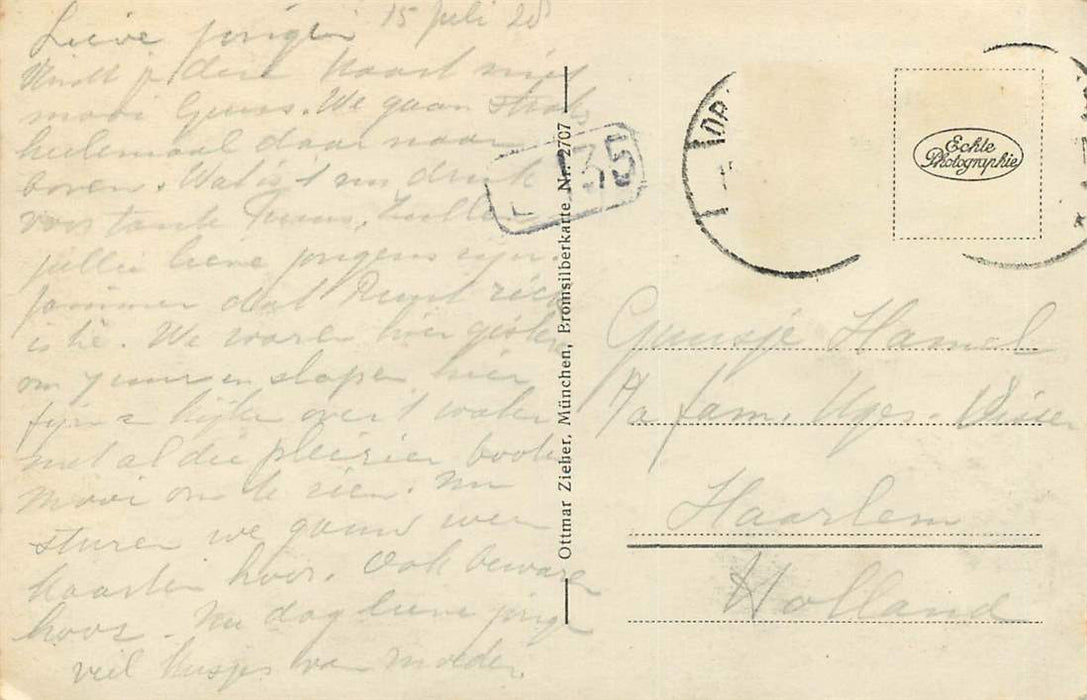 15 Juli 28
Lieve jongen
Vindt je deze kaart niet
mooi Guus. We gaan straks
helemaal daar naar
boven. Wat is 't nu druk
voor tante Zullen
jullie lieve jongens zijn.
Jammer dat Ruut ziek
is hè. We waren hier gisteren
om 7 uur en slapen hier
fijn kijken over 't water
met al die plezier booten
Mooi om te zien. Nu
sturen we gauw weer
kaarten hoor. Ook bewaren
hoor. Nu dag lieve jongen
veel kusjes van moeder.
L 35
Ottmar Zieher, München, Bromsilberkarte Nr. 2707
Echte
Photographie
Guusje Hamel
p/a fam. Visser
Haarlem
Holland